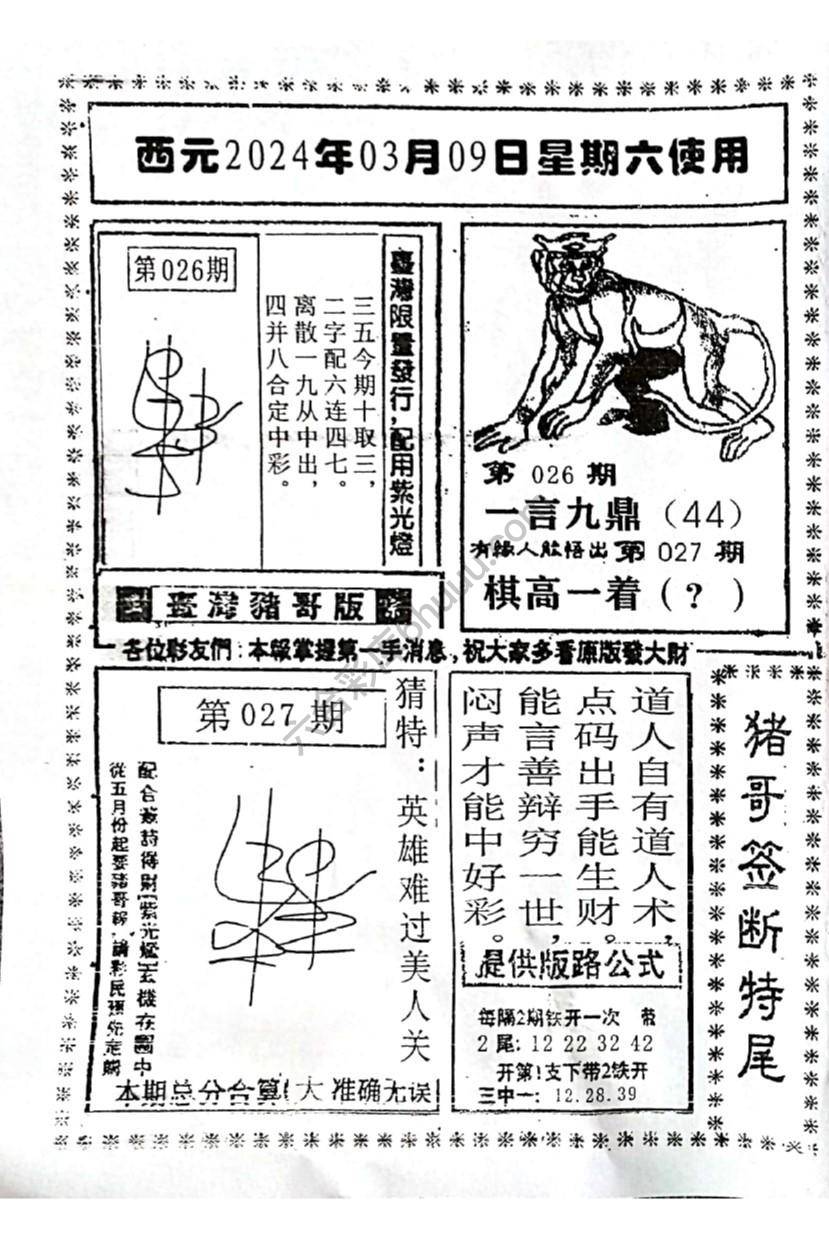 西元2024年03月09日星期六使用
第026期
三五今期十取三，
二字配六连四七。
离散一九从中出，
四并八合定中彩。
臺灣限量發行，配用紫光燈
臺灣豬哥版
第 026 期
一言九鼎（44）
有緣人能悟出 第 027 期
棋高一着（？）
各位彩友們：本報掌握第一手消息，祝大家多看原版發大財
第 027 期
猜特：英雄难过美人关
配合漩詩得財[紫光燈]玄機在圖中
從五月份起要豬哥報，請彩民預先定購
本期总分合算（大 准确无误
道人自有道人术，
点码出手能生财。
能言善辩穷一世，
闷声才能中好彩。
提供版路公式
每隔2期铁开一次
2尾：12 22 32 42
开第1支下带2铁开
三中一：12.28.39
猪哥签断特尾
六合彩库6huuu.com